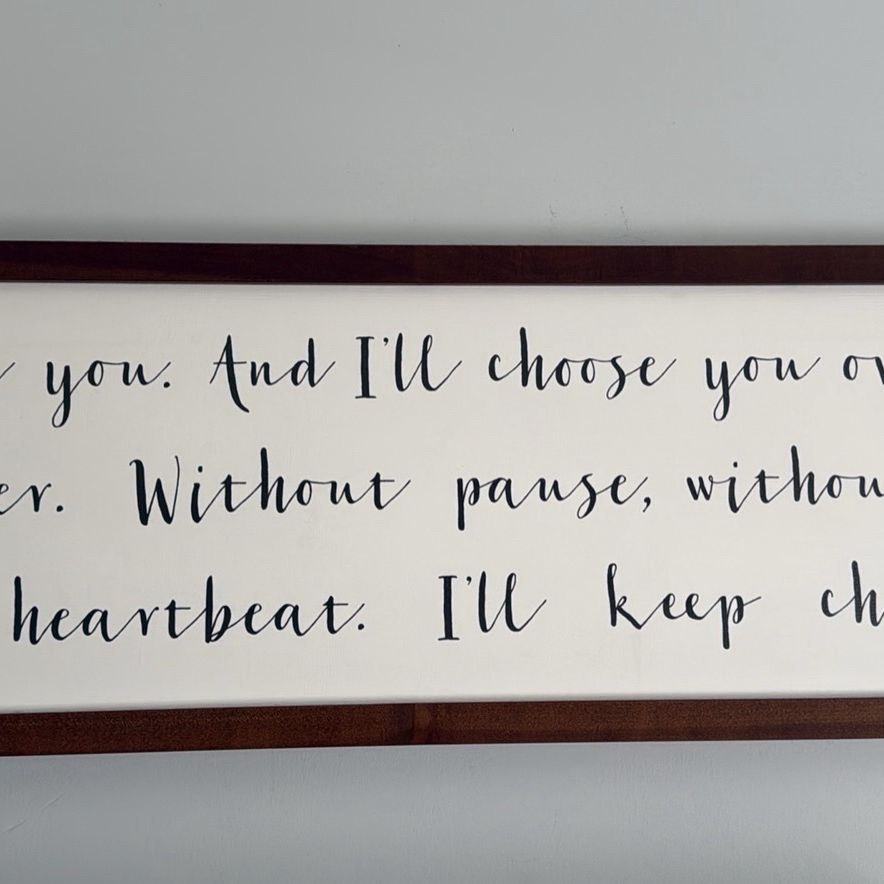 you. And I'll choose you ov
er. Without pause, withou
heartbeat. I'll keep ch